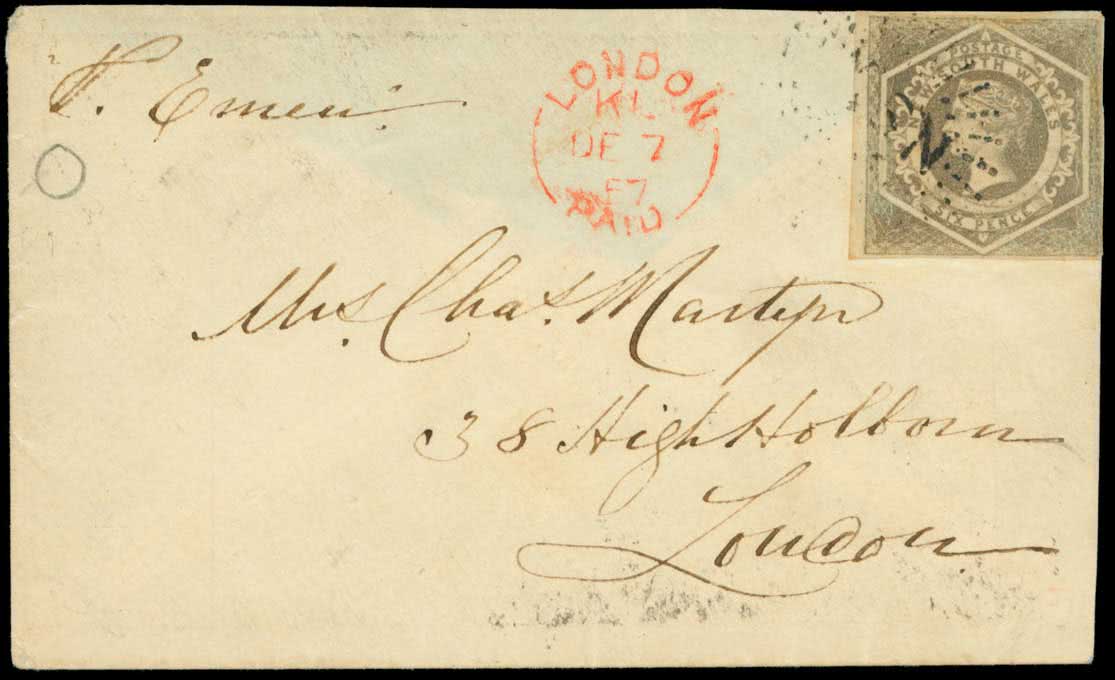 P. Emeu
LONDON
KL
DE 7
57
PAID
POSTAGE
NEW SOUTH WALES
SIX PENCE
Mrs. Chas. Martyn
38 High Holborn
London